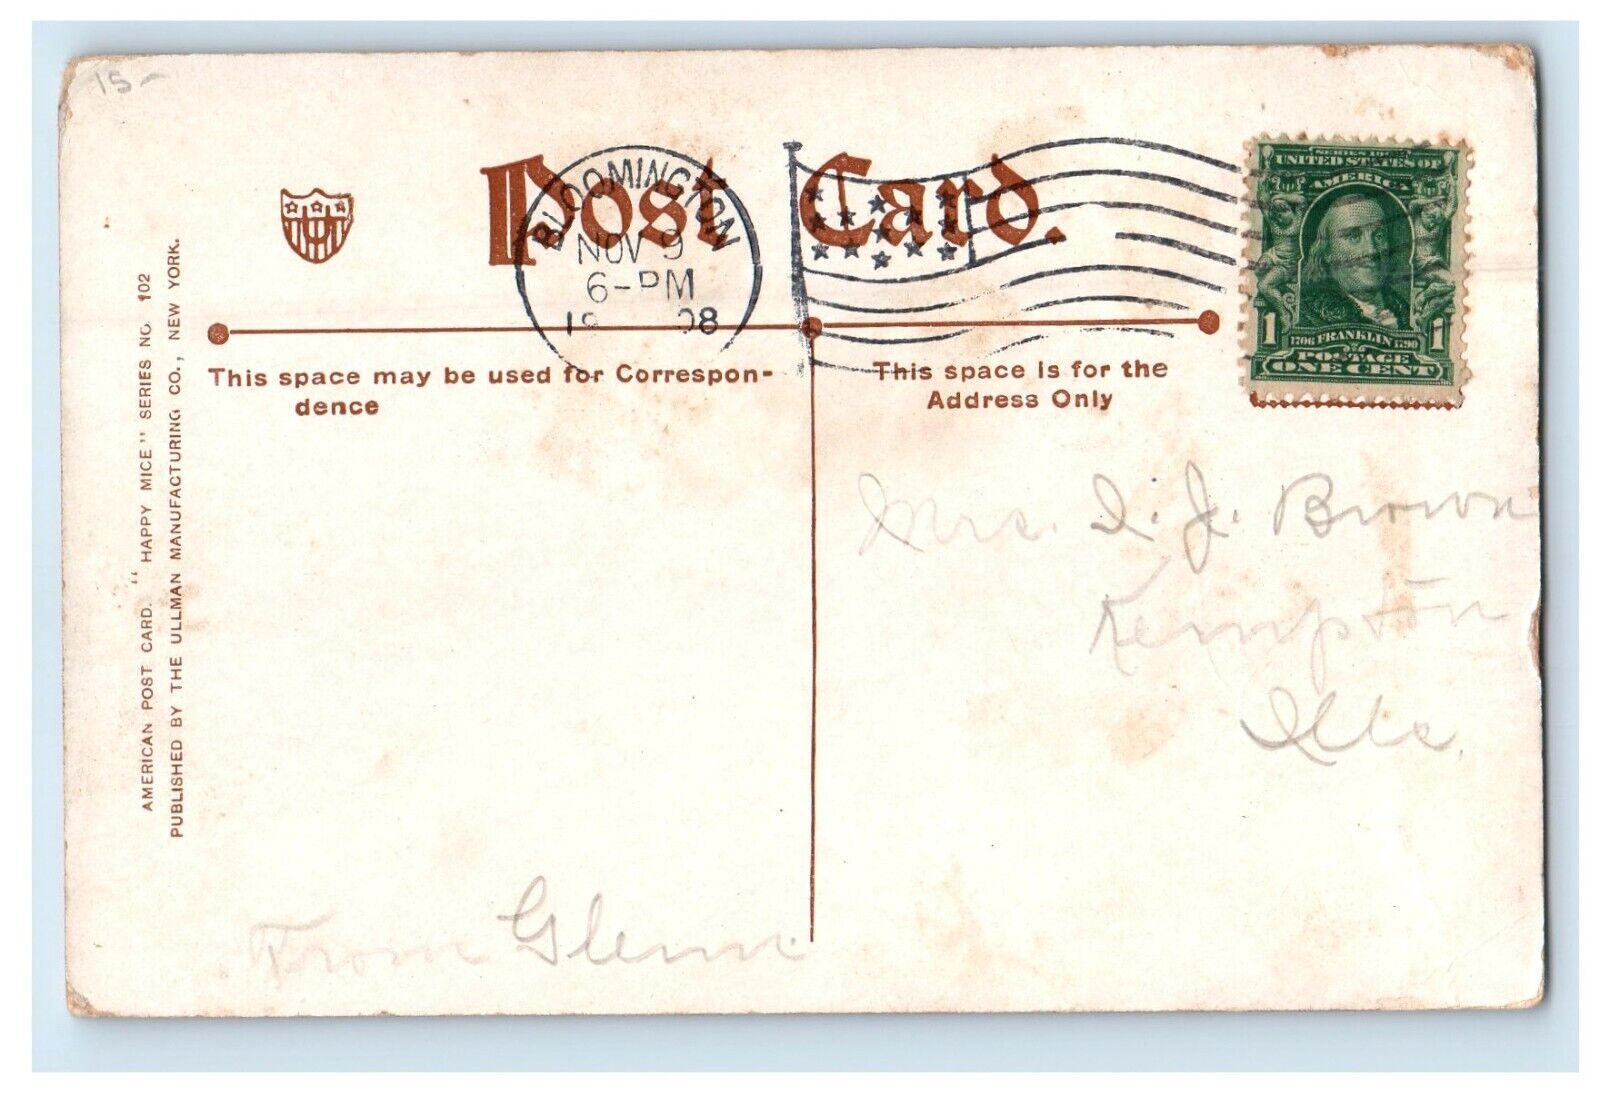 15-
Post Card.
BLOOMINGTON
NOV 9
6-PM
19 08
UNITED STATES OF
AMERICA
1706 FRANKLIN 1790
POSTAGE
1 ONE CENT 1
This space may be used for Correspon-
dence
This space is for the
Address Only
AMERICAN POST CARD. "HAPPY MICE" SERIES NO. 102
PUBLISHED BY THE ULLMAN MANUFACTURING CO., NEW YORK.
Mrs. I. J. Brown
Kempton
Ills.
From Glenn.